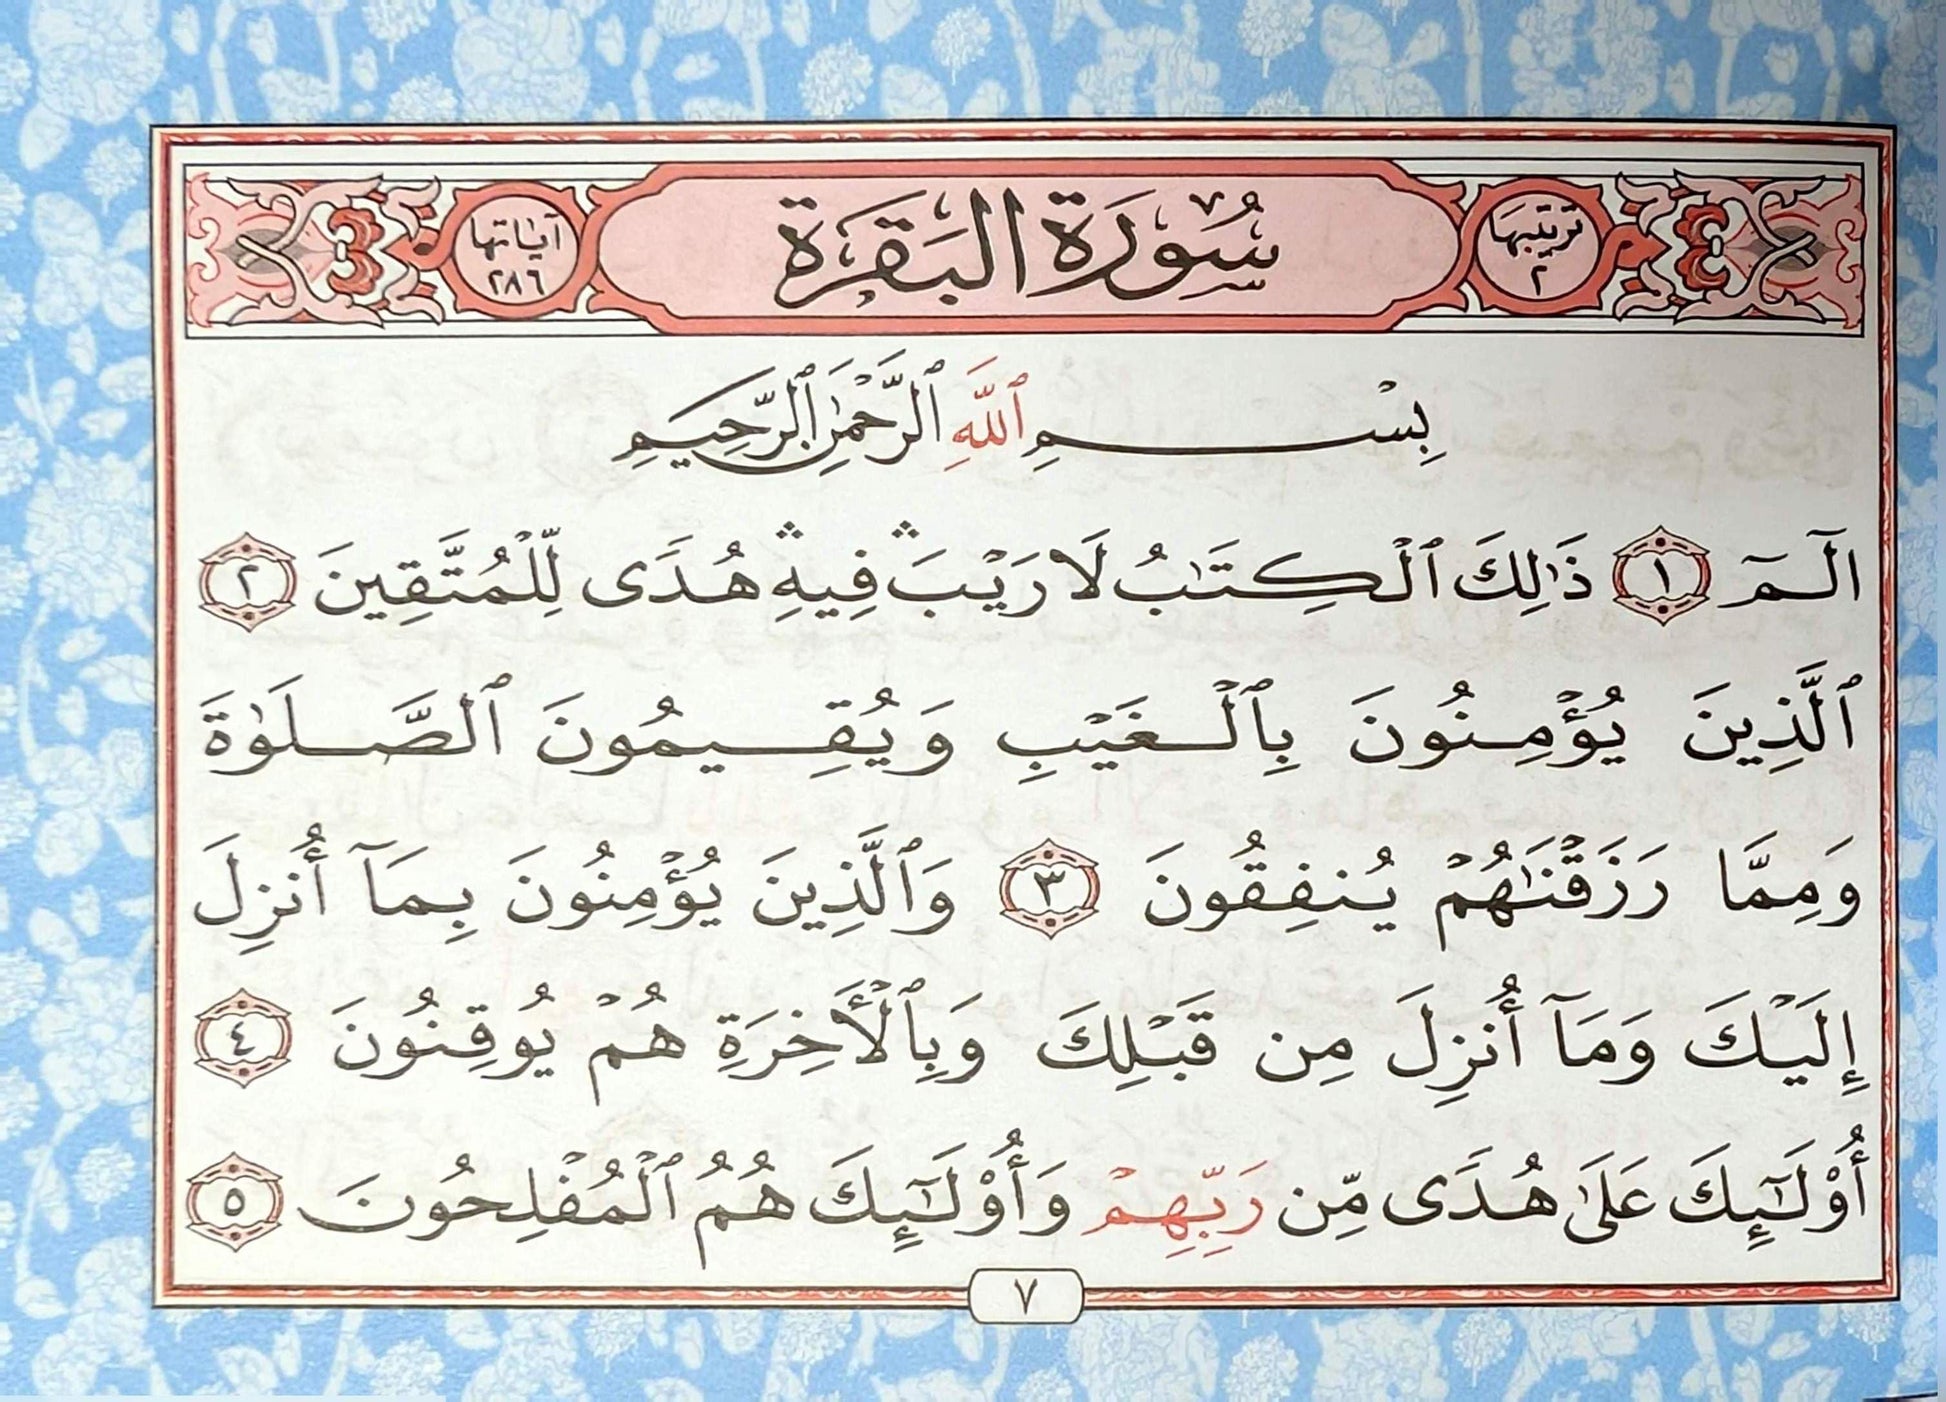 ترتيبها
٢
سُورَةُ البَقَرَةِ
آياتها
٢٨٦
بِسْمِ ٱللَّهِ ٱلرَّحْمَٰنِ ٱلرَّحِيمِ
الٓمٓ ١ ذَٰلِكَ ٱلْكِتَٰبُ لَا رَيْبَ ۛ فِيهِ ۛ هُدًى لِّلْمُتَّقِينَ ٢
ٱلَّذِينَ يُؤْمِنُونَ بِٱلْغَيْبِ وَيُقِيمُونَ ٱلصَّلَوٰةَ
وَمِمَّا رَزَقْنَٰهُمْ يُنفِقُونَ ٣ وَٱلَّذِينَ يُؤْمِنُونَ بِمَآ أُنزِلَ
إِلَيْكَ وَمَآ أُنزِلَ مِن قَبْلِكَ وَبِٱلْأَخِرَةِ هُمْ يُوقِنُونَ ٤
أُوْلَٰٓئِكَ عَلَىٰ هُدًى مِّن رَبِّهِمْ وَأُوْلَٰٓئِكَ هُمُ ٱلْمُفْلِحُونَ ٥
٧